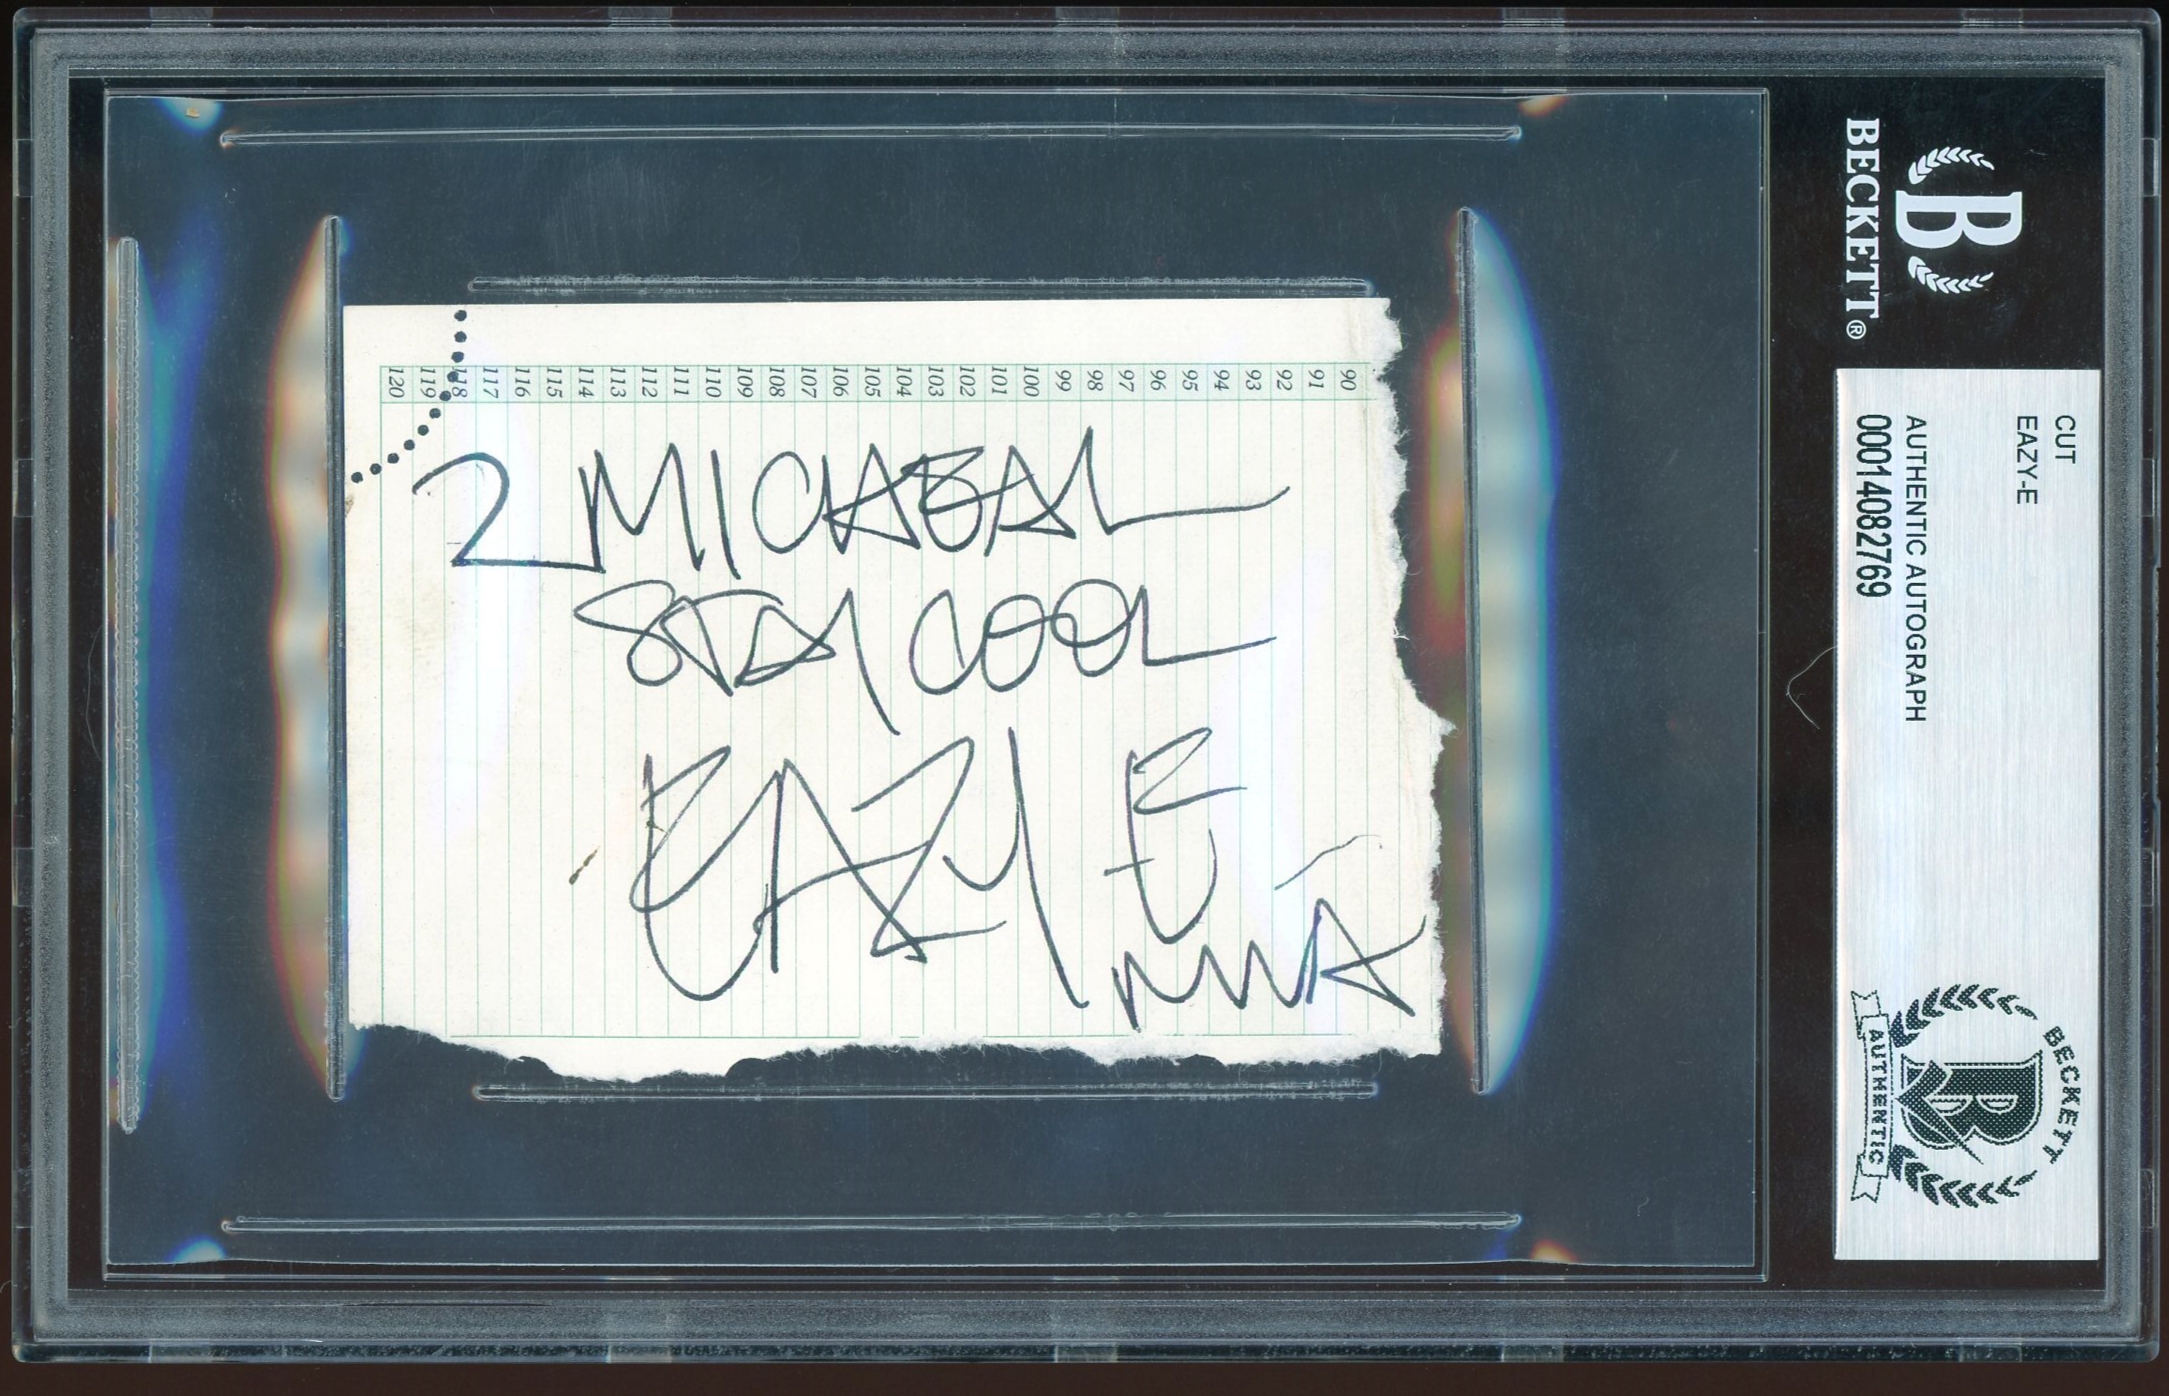 120 119 118 117 116 115 114 113 112 111 110 109 108 107 106 105 104 103 102 101 100 99 98 97 96 95 94 93 92 91 90
2 MICHEAL
STAY COOL
EAZY E
NWA
BECKETT®
B
CUT
EAZY-E
AUTHENTIC AUTOGRAPH
00014082769
BECKETT
B
AUTHENTIC